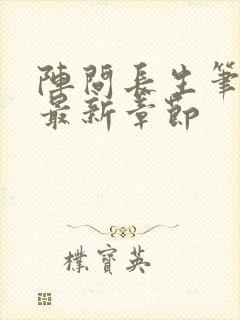 陣問長生筆
最新章節
樸寶英